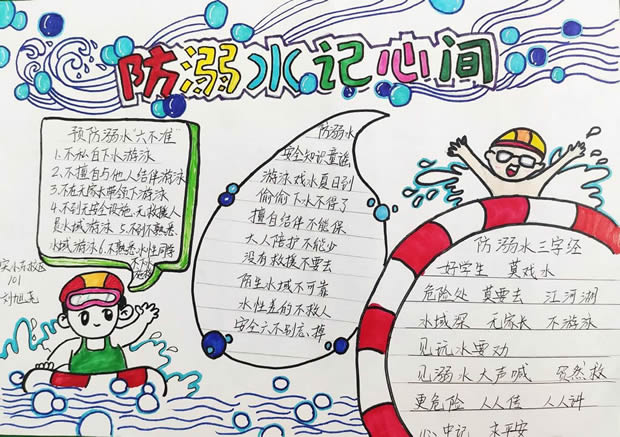 防溺水记心间
预防溺水"六不准"
1.不私自下水游泳
2.不擅自与他人结伴游泳
3.不在无家长带领下游泳
4.不到无安全设施、无救援人
员水域游泳 5.不到不熟悉
水域游泳 6.不熟悉水性同学
不下水
101
防溺水
安全知识童谣
游泳戏水夏日到
偷偷下水不得了
擅自结伴不能保
大人陪护不能少
没有救援不要去
陌生水域不可靠
水性差的不救人
安全六不别忘掉
防溺水三字经
好学生 莫戏水
危险处 莫要去 江河湖
水域深 无家长 不游泳
见玩水要劝
见溺水大声喊 贸然救
更危险 人人传 人人讲
心中记 永平安